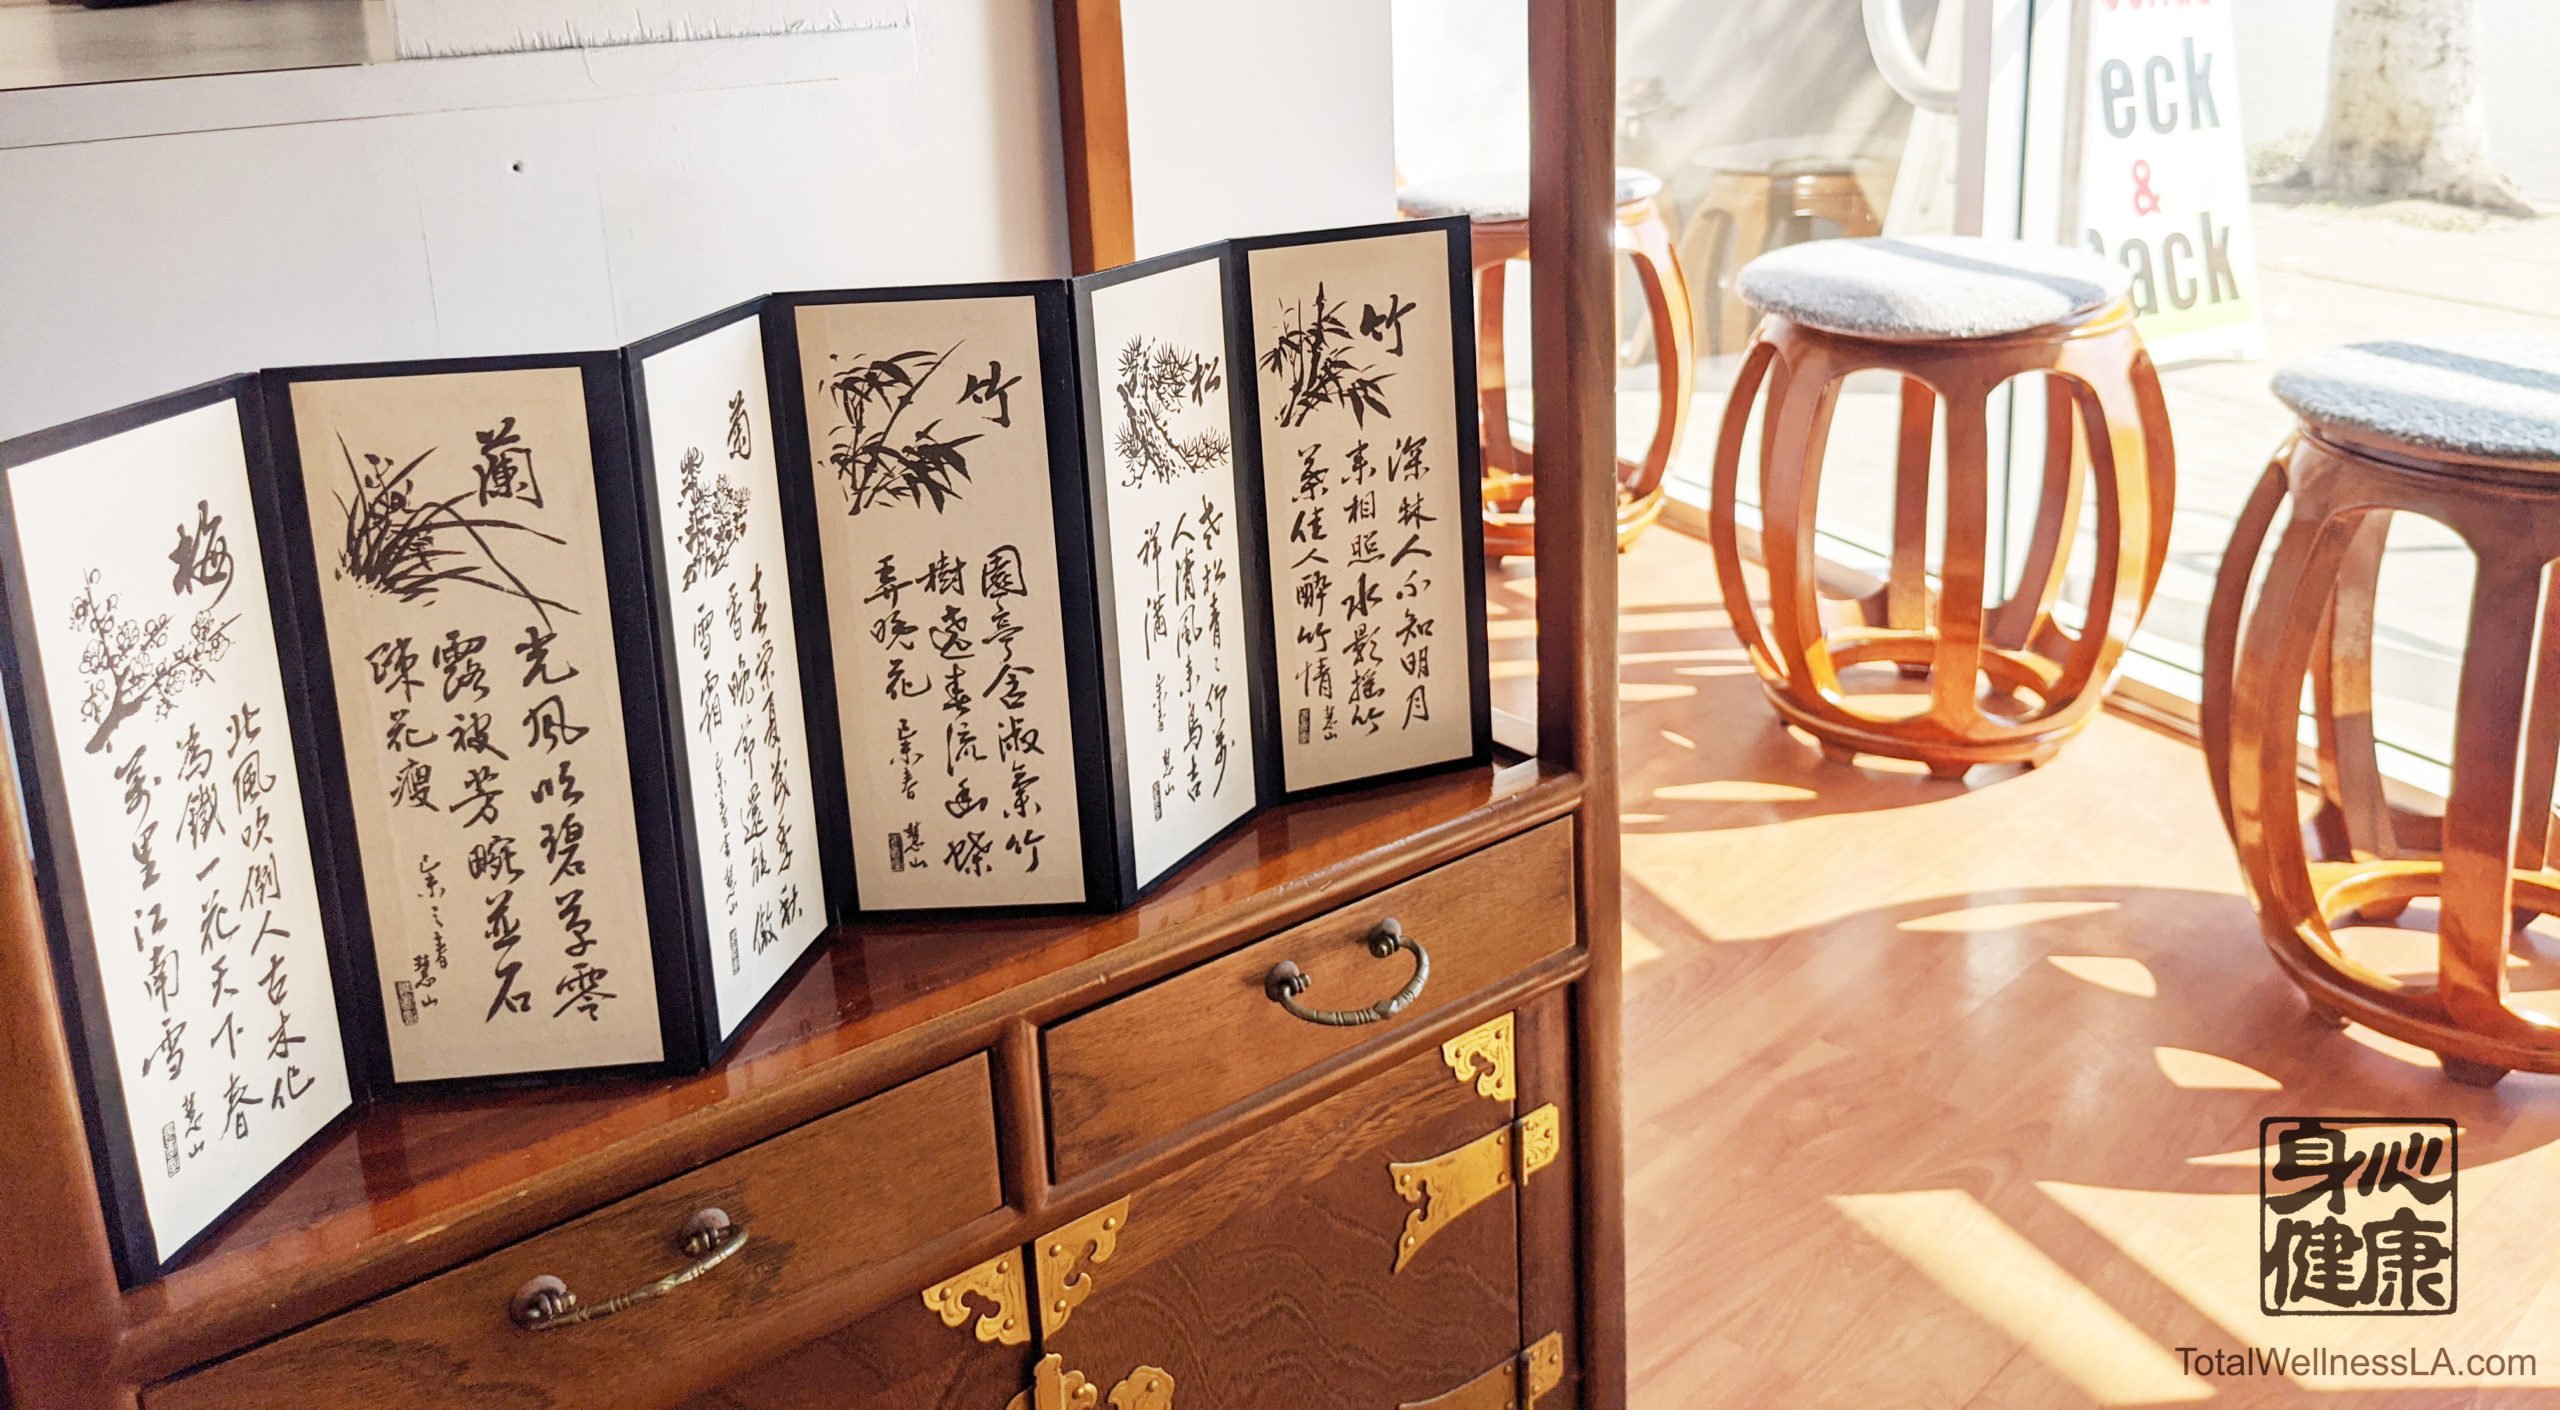 梅
北風吹倒人古木化
為鐵一花天下春
萬里江南雪
慧山
蘭
光風吹碧草零
露被芳畹並石
疎花瘦
己未之春
慧山
菊
春榮夏茂季秋
香晚節還能傲
雪霜
己未春書慧山
竹
園亭含淑氣竹
樹遶春流幽蝶
弄晚花
己未春
慧山
松
老松青〻仰萬
人清風來鳥吉
祥滿
慧山
竹
深林人不知明月
來相照水影搖竹
葉佳人醉竹情
慧山
eck
&
ack
身心
健康
TotalWellnessLA.com